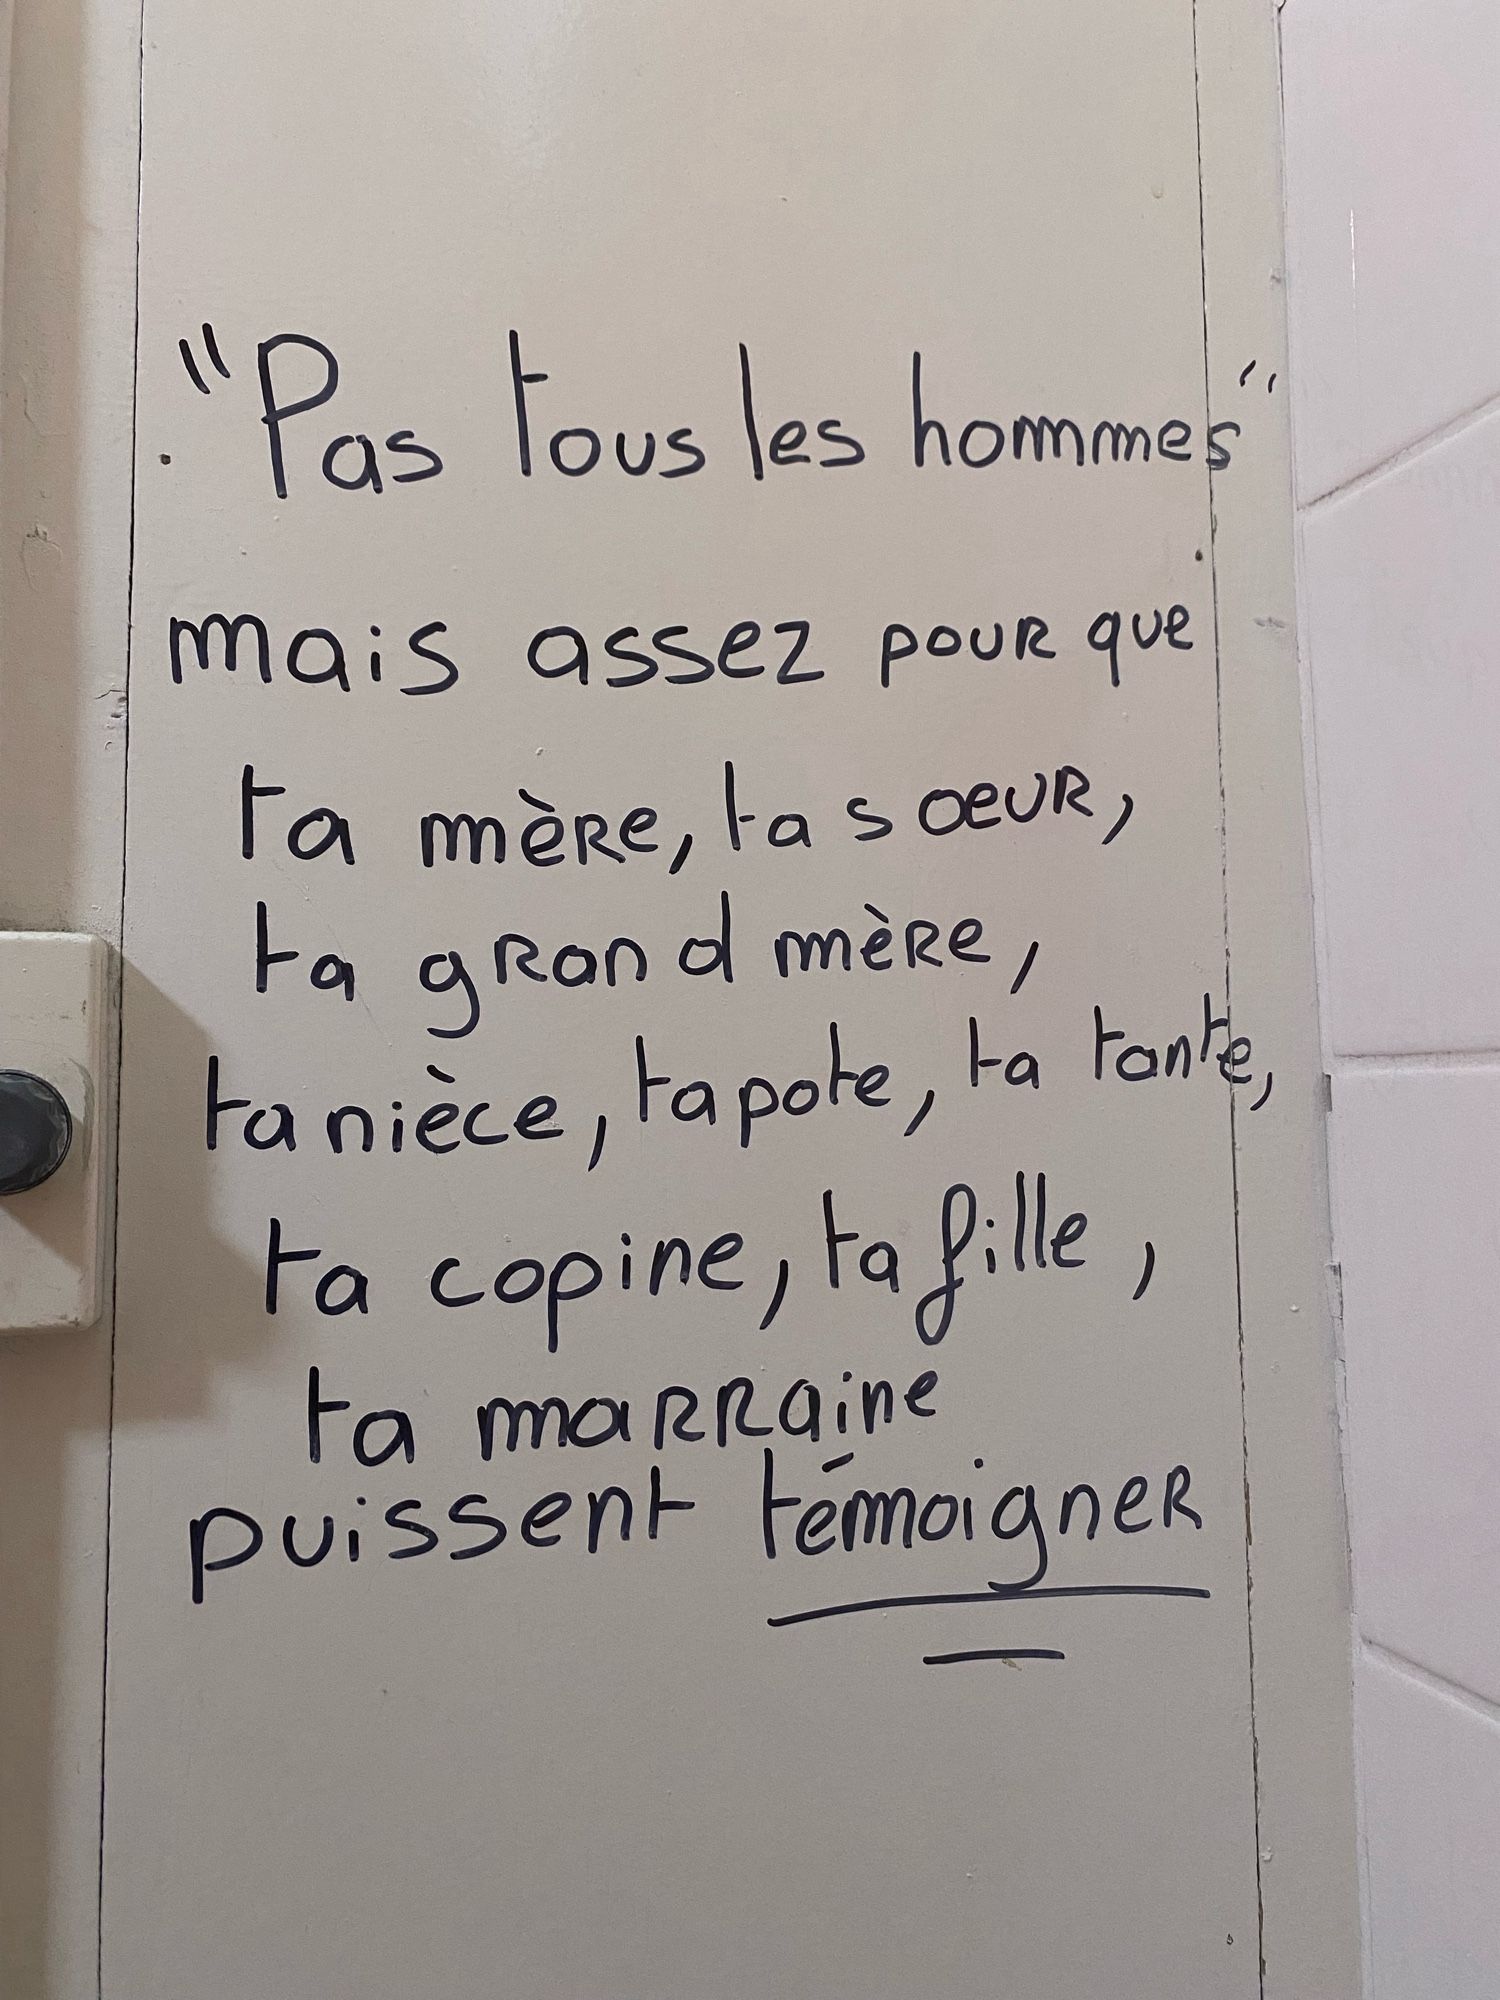 "Pas tous les hommes"
mais assez pour que
ta mère, ta sœur,
ta grand mère,
ta nièce, ta pote, ta tante,
ta copine, ta fille,
ta marraine
puissent témoigner